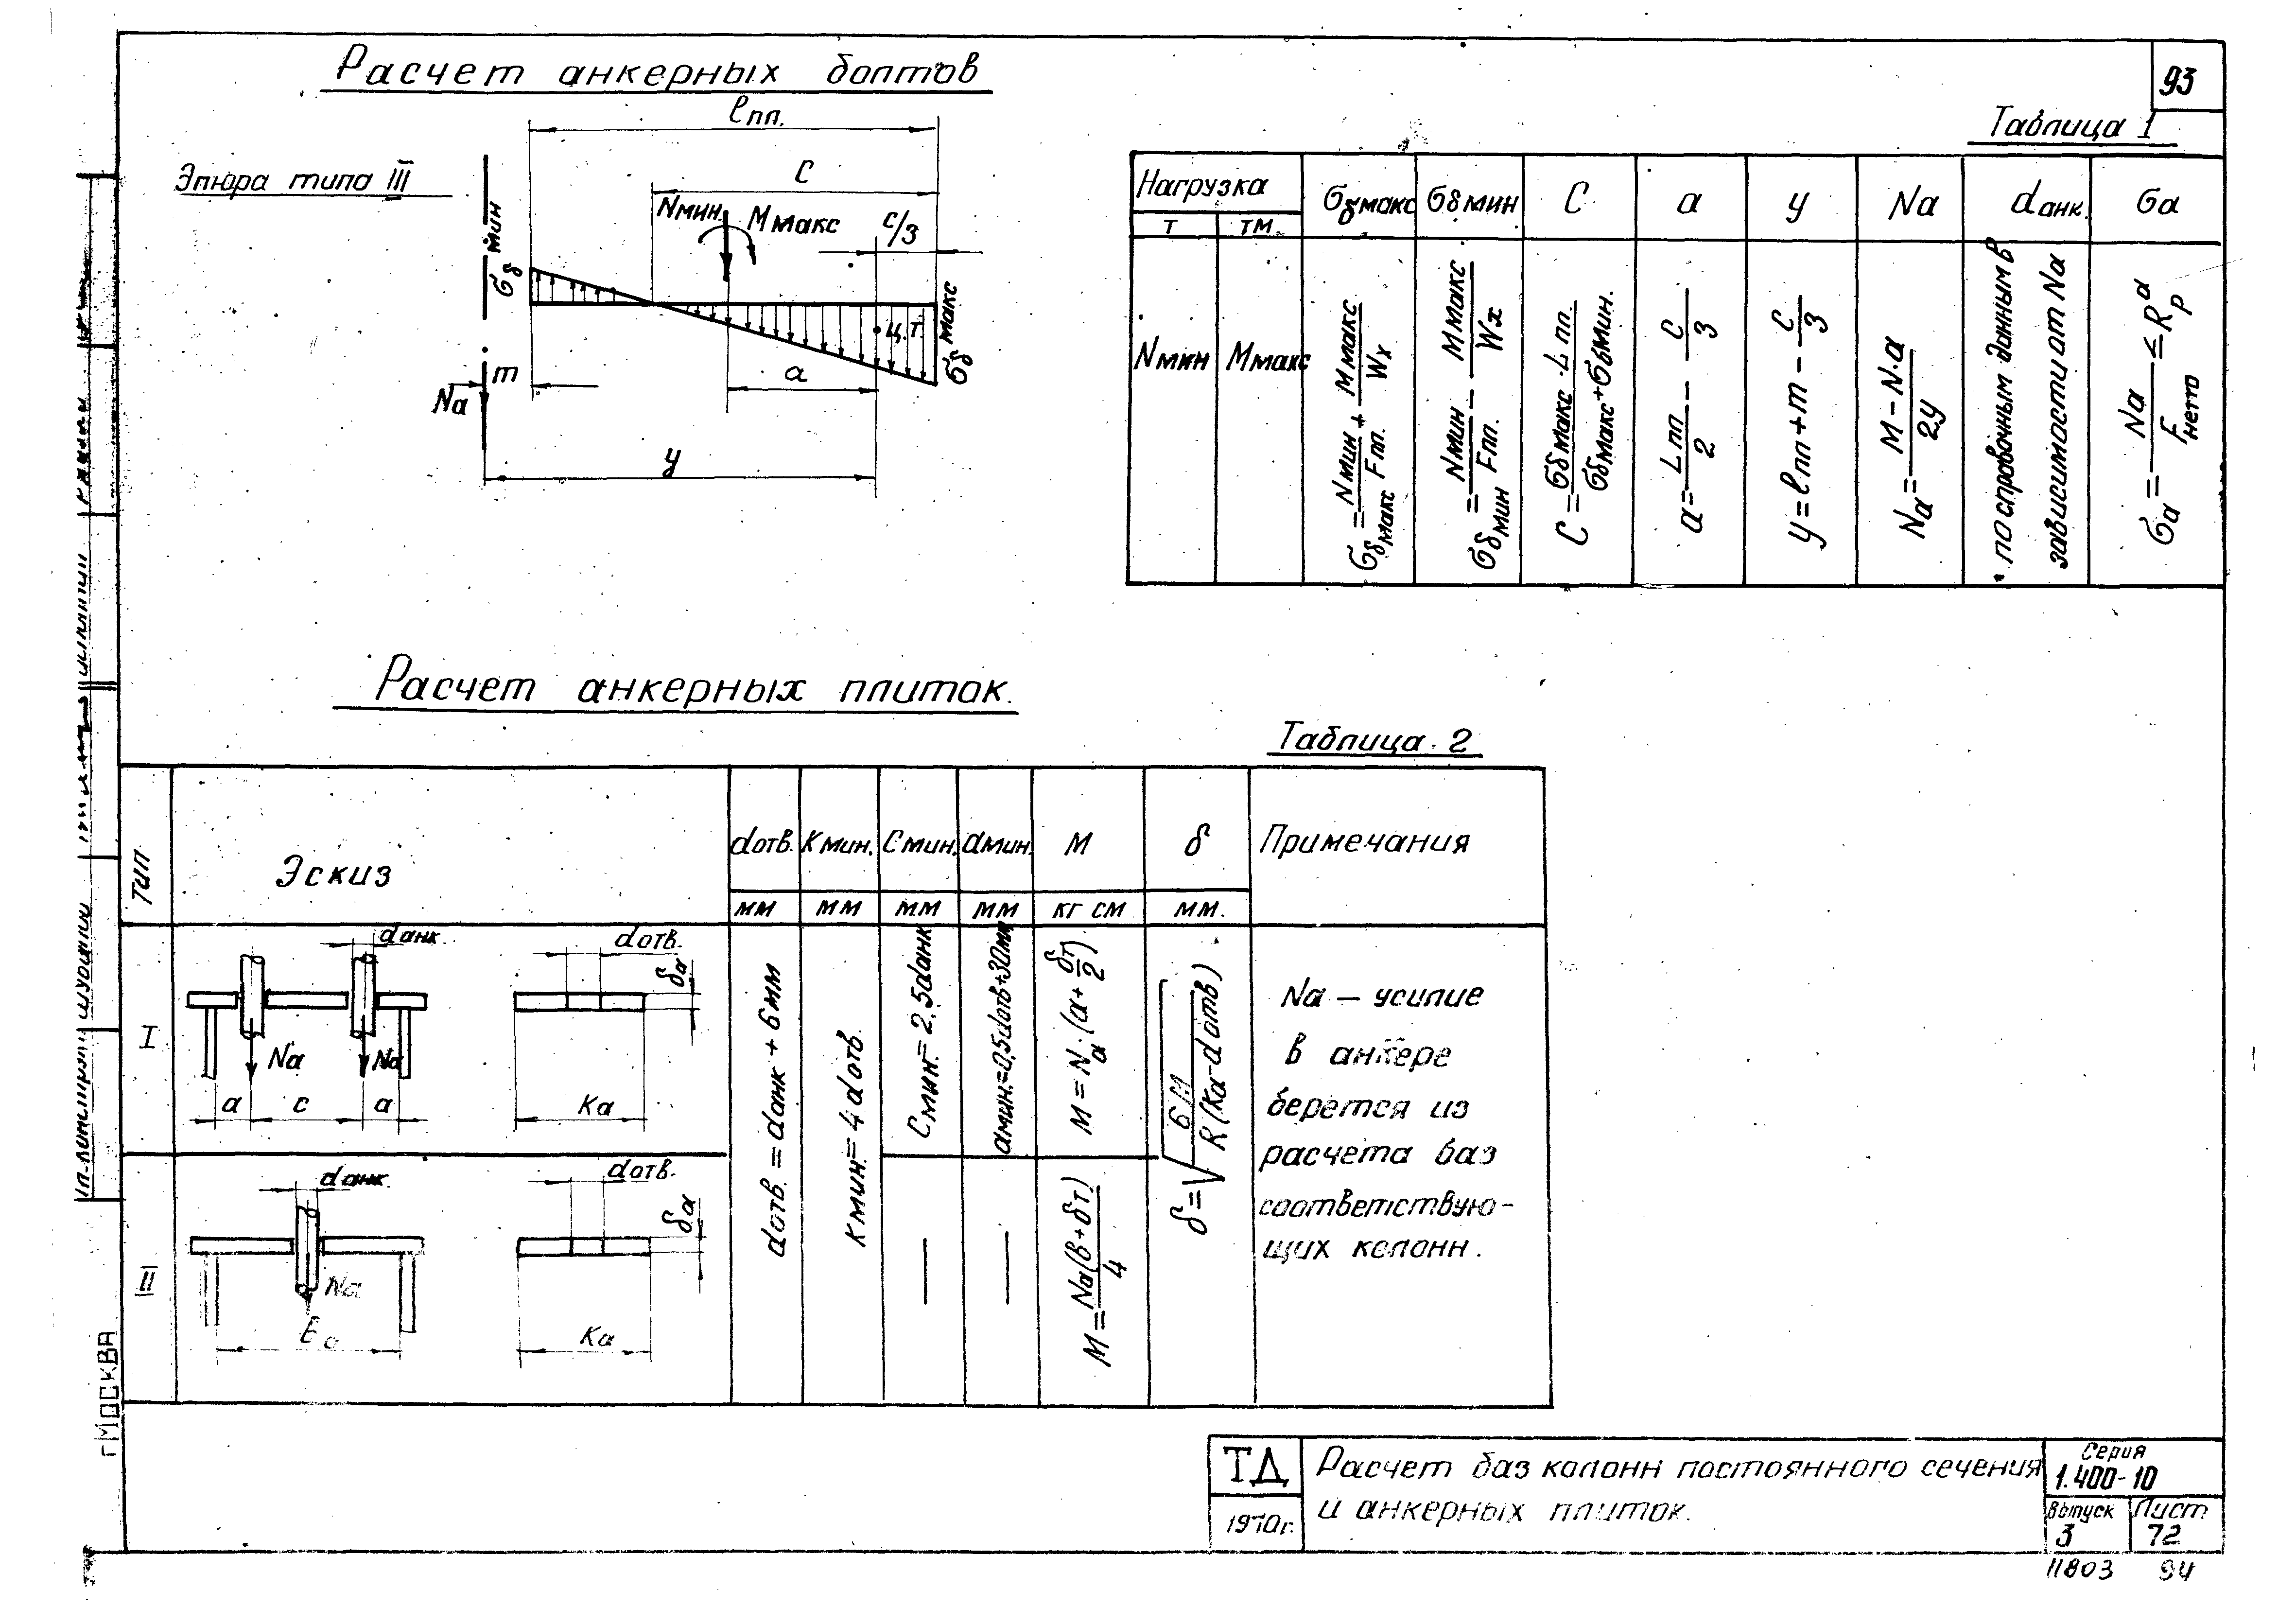 93
Расчет анкерных болтов
Эпюра типа III
lпл.
C
Nмин.
Mмакс
c/3
σб мин
σб макс
ц.т.
m
Nа
a
y
Таблица 1
Нагрузка
т
тм
σб макс
σб мин
C
a
y
Nа
dанк.
σа
Nмин
Mмакс
σб макс = Nмин/Fпл. + Mмакс/Wx
σб мин = Nмин/Fпл. - Mмакс/Wx
C = σб макс · Lпл. / σб макс + σб мин.
a = Lпл/2 - C/3
y = lпл + m - C/3
Nа = M - N·a / 2y
по справочным данным в
зависимости от Nа
σа = Nа/Fнетто ≤ Rрᵃ
Расчет анкерных плиток.
Таблица 2
тип
Эскиз
dотв.
Kмин.
Cмин.
aмин.
M
δ
Примечания
мм
мм
мм
мм
кг см
мм.
I
dанк.
Nа
Nа
a
c
a
dотв.
δа
Kа
dотв. = dанк + 6 мм
Kмин. = 4 dотв.
Cмин. = 2,5dанк
aмин. = 0,5dотв + 30мм
M = Nа · (a + δт/2)
δ = √ 6M / R(Kа - dотв)
Nа — усилие
в анкере
берется из
расчета баз
соответствую-
щих колонн.
II
dанк.
Nа
dотв.
δа
Kа
—
—
M = Nа(в + δт) / 4
ТД
1970г.
Расчет баз колонн постоянного сечения
и анкерных плиток.
Серия
1.400-10
Выпуск
3
Лист
72
11803
94
г МОСКВА